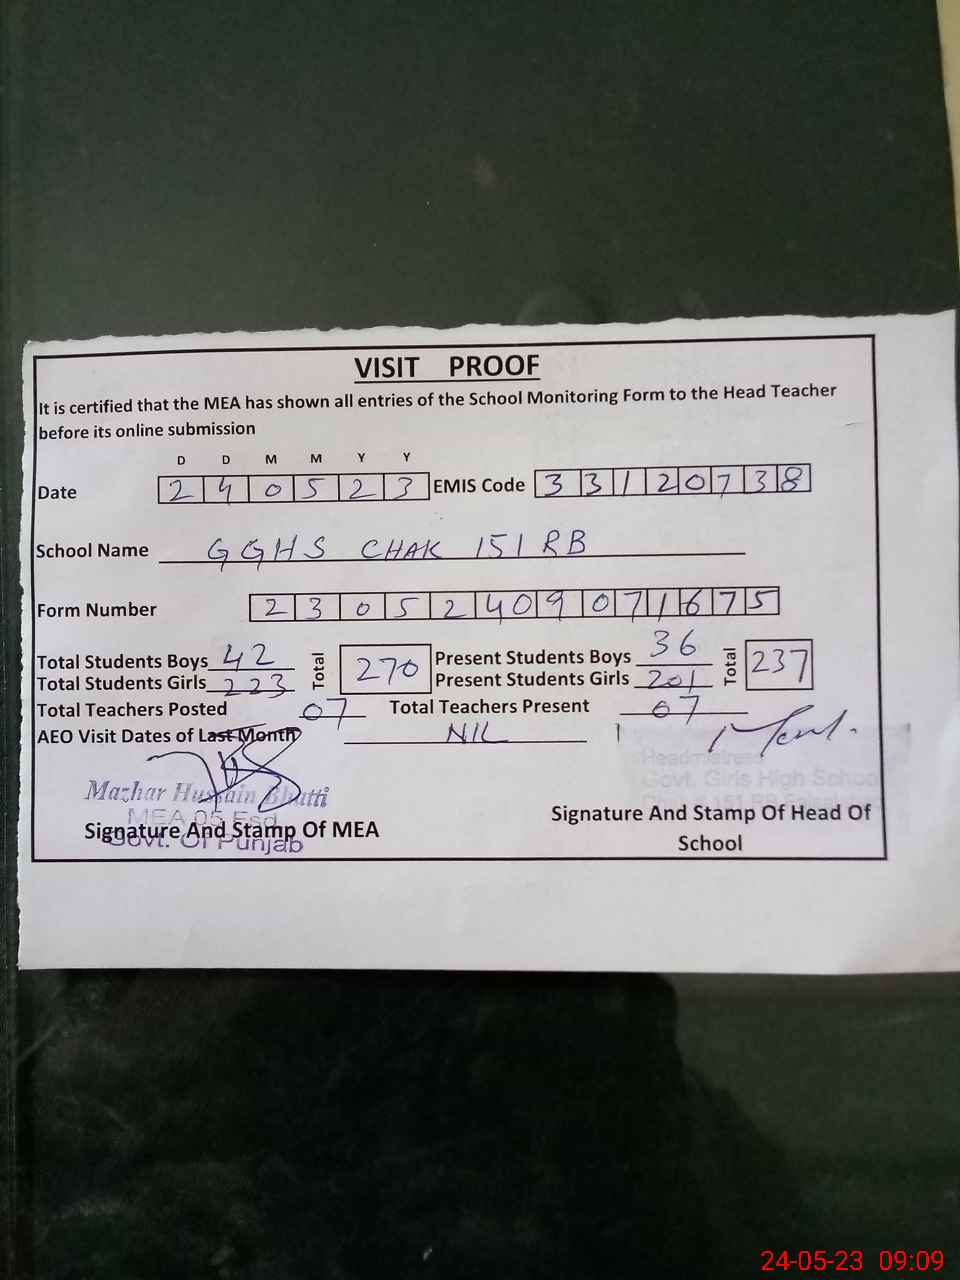 VISIT PROOF
It is certified that the MEA has shown all entries of the School Monitoring Form to the Head Teacher
before its online submission
D D M M Y Y
Date 2 4 0 5 2 3 EMIS Code 3 3 1 2 0 7 3 8
School Name GGHS CHAK 151 RB
Form Number 2 3 0 5 2 4 0 9 0 7 1 6 7 5
Total Students Boys 42 Total 270 Present Students Boys 36 Total 237
Total Students Girls 223 Present Students Girls 201
Total Teachers Posted 07 Total Teachers Present 07
AEO Visit Dates of Last Month NIL
Headmistress
Govt. Girls High School
Mazhar Hussain Bhatti
MEA 05 Fsd
Govt. Of Punjab
Signature And Stamp Of MEA
Signature And Stamp Of Head Of
School
24-05-23 09:09